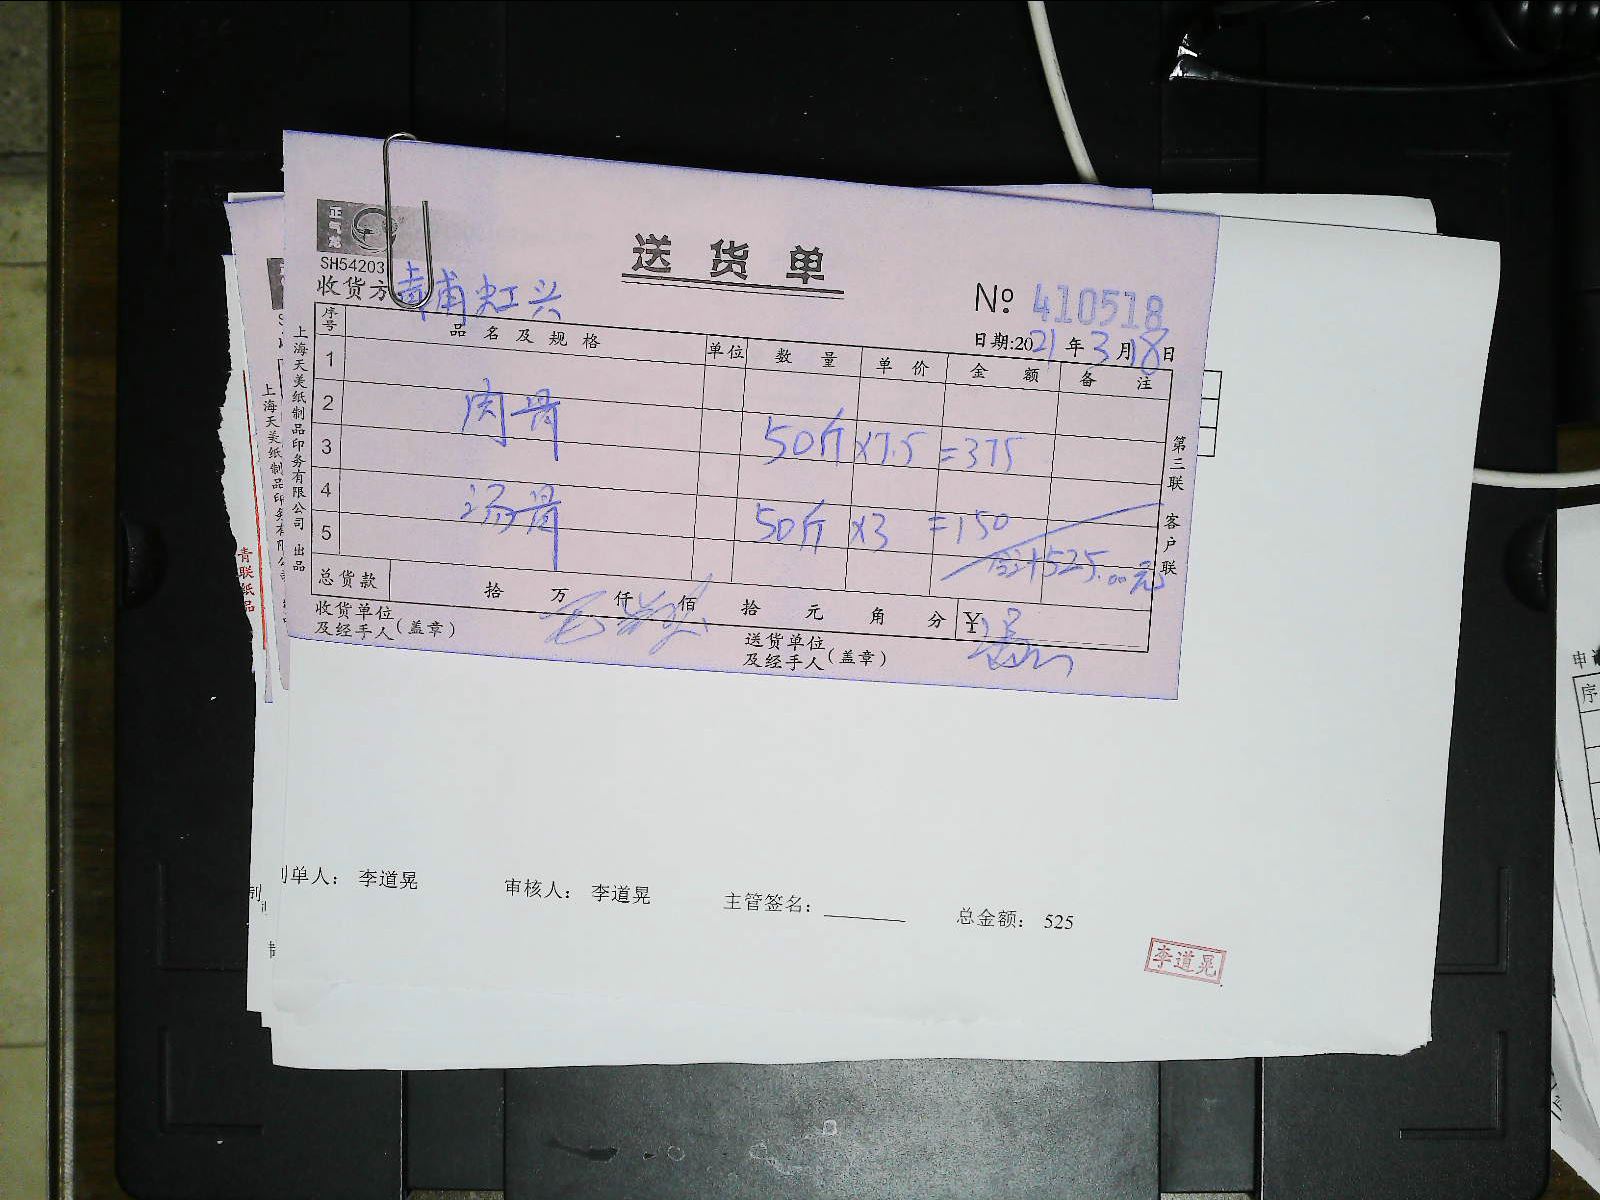 正气龙
SH54203
送货单
收货方 青浦虹兴
№ 410518
日期:2021年3月18日
序号 品名及规格 单位 数量 单价 金额 备注
1
2 肉骨
3 50斤 ×7.5 =375
4 汤骨
5 50斤 ×3 =150
合计525.00元
总货款 拾 万 仟 佰 拾 元 角 分 ¥
收货单位
及经手人(盖章)
送货单位
及经手人(盖章)
上海天美纸制品印务有限公司 出品
第三联 客户联
上海天美纸制品印务有限公司
青联纸品
制单人: 李道晃 审核人: 李道晃 主管签名: 总金额: 525
李道晃
申
序